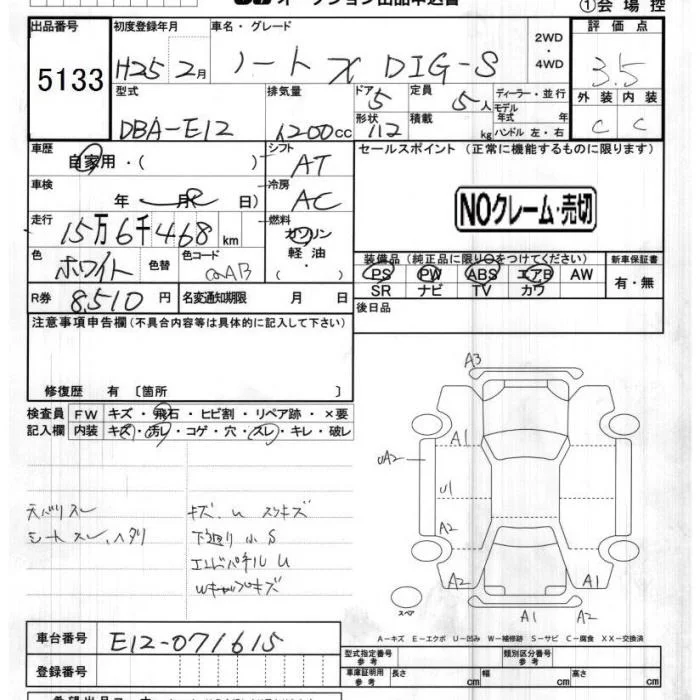 オークション出品申込書
①会場控
出品番号
5133
初度登録年月
H25 2月
車名・グレード
ノート X DIG-S
2WD
・
4WD
評価点
3.5
外装 内装
C C
型式
DBA-E12
排気量
1200cc
ドア 5
形状 112
定員 5人
積載 kg
ディーラー・並行
モデル年式 年
ハンドル 左・右
車歴
自家用・( )
シフト
AT
セールスポイント (正常に機能するものに限ります)
NOクレーム・売切
車検
年 月 日)
冷房
AC
走行
15万6千468km
燃料
ガソリン
軽油
・( )
色
ホワイト
色替
色コード
装備品 (純正品に限り○をつけてください)
新車保証書
PS PW ABS エアB AW
SR ナビ TV カワ
有・無
R券
8,510円
名変通知期限 月 日
後日品
注意事項申告欄(不具合内容等は具体的に記入して下さい)
修復歴 有 〔箇所 〕
検査員
記入欄
FW キズ・飛石・ヒビ割・リペア跡・×要
内装 キズ・汚レ・コゲ・穴・スレ・キレ・破レ
天バリスレ
シートスレ、ヘタリ
キズ、U スリキズ
下廻り小S
エンドパネルU
Wキャップキズ
A3
A1
UA2
U1
A2
A2
A1
スペア
A1
A2
A－キズ E－エクボ U－凹み W－補修跡 S－サビ C－腐食 XX－交換済
車台番号
E12-071615
登録番号
型式指定番号
参考
類別区分番号
参考
車庫証明用
参考
長さ cm
幅 cm
高さ cm